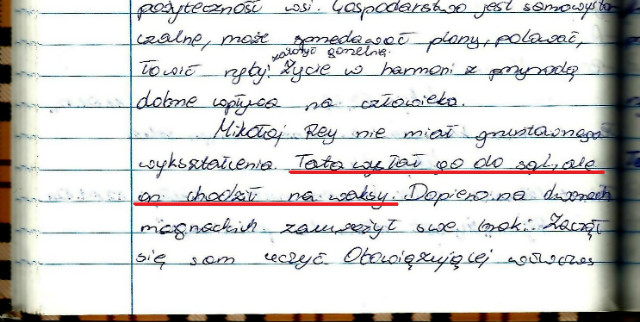 pożyteczność wsi. Gospodarstwo jest samowystar
czalne, może sprzedawać plony, polować,
założyć gorzelnię.
łowić ryby. Życie w harmoni z przyrodą
dobrze wpływa na człowieka.
Mikołaj Rey nie miał gruntownego
wykształcenia. Tata wysłał go do szkół, ale
on chodził na waksy. Dopiero na dworach
magnackich zauważył swe braki. Zaczął
się sam uczyć. Obowiązującej wówczas